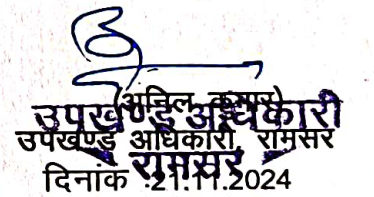 (अनिल कुमार)
उपखण्ड अधिकारी
उपखण्ड अधिकारी, रामसर
रामसर
दिनांक :21.11.2024